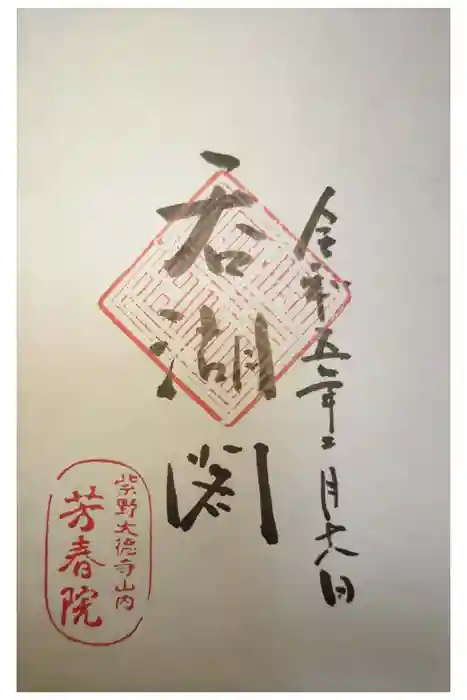 令和五年二月十八日
呑湖閣
紫野大徳寺山内
芳春院